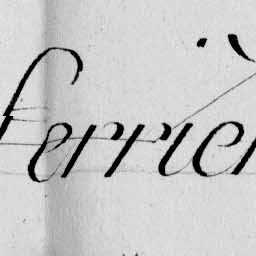 ferrièr